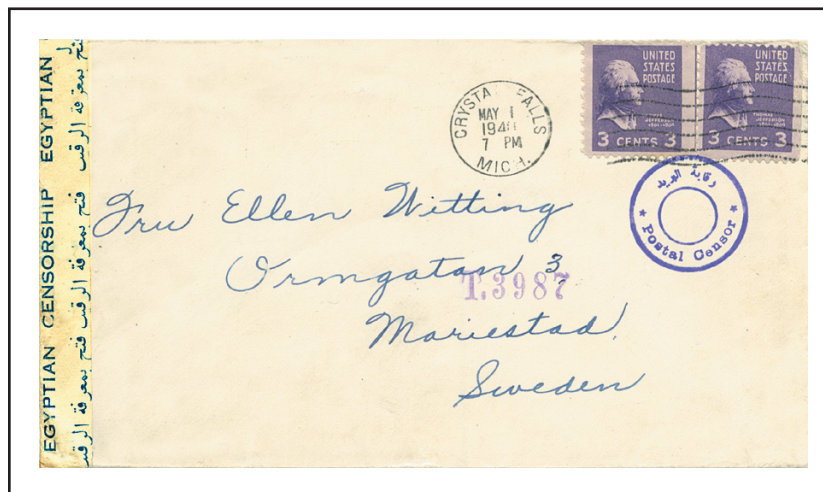 EGYPTIAN CENSORSHIP EGYPTIAN
فتح بمعرفة الرقيب فتح بمعرفة الرقيب فتح بمعرفة الرقيب
CRYSTA FALLS
MAY 1
194
7 PM
MICH.
UNITED
STATES
POSTAGE
THOMAS
JEFFERSON
3 CENTS 3
UNITED
STATES
POSTAGE
THOMAS
JEFFERSON
3 CENTS 3
رقابة البريد
* Postal Censor *
Fru Ellen Witting
Ormgatan 3,
T.3987
Mariestad,
Sweden